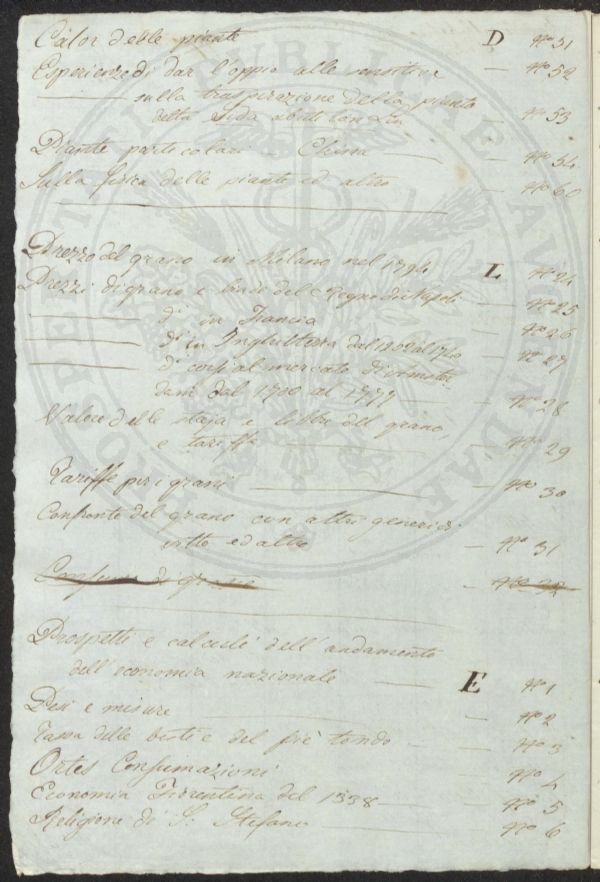 Calor delle piante D N° 51
Esperienze di dar l'oppio alle sensitive — N° 52
——— sulla traspirazione della pianta
detta Sida abutilon — N° 53
Piante particolari — China — N° 54
Sulla fisica delle piante ed altro — N° 60
Prezzo del grano in Milano nel 1794 L N° 24
Prezzi di grano e del Regno di Napoli — N° 25
——— d.i in Francia — N° 26
——— d.i in Inghilterra dal 1202 al 1760 — N° 27
——— d.i corsi al mercato di Amster
dam dal 1700 al 1779 — N° 28
Valore delle staja e libbre del grano,
e tariffe — N° 29
Tariffe per i grani — N° 30
Confronto del grano con altri generi di
vitto ed altro — N° 31
Consumo di grano — N° 32
Prospetti e calcoli dell'andamento
dell'economia nazionale — E N° 1
Pesi e misure — N° 2
Tassa delle bestie del piè tondo — N° 3
Ortes Consumazioni — N° 4
Economia Fiorentina del 1338 — N° 5
Religione di S: Stefano — N° 6
PUBLICAE